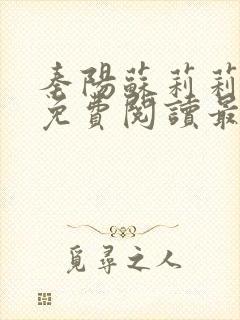 秦陽蘇莉莉
免費閱讀最
覓尋之人